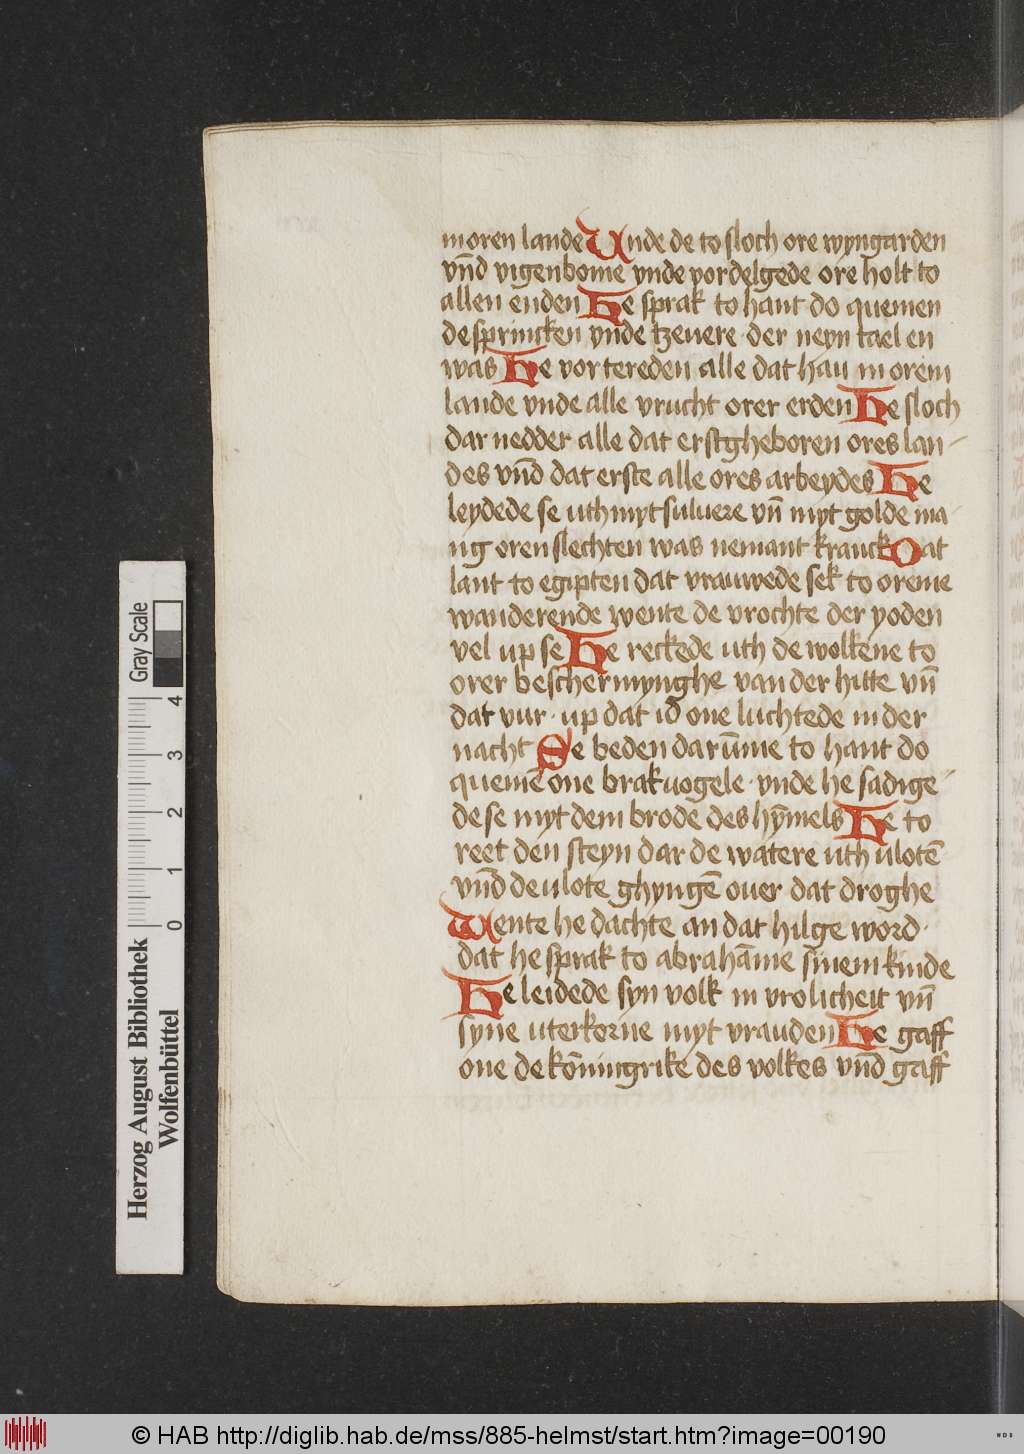 in oren lande Unde de to sloch ore wyngarden
vn̄d vigenbome vnde vordelgede ore holt to
allen enden He sprak to hant do quemen
de sprincken vnde tzeuere · der neyn tael en
was He vortereden alle dat hau in orem
lande vnde alle vrucht orer erden He sloch
dar nedder alle dat erstgheboren ores lan-
des vn̄d dat erste alle ores arbeydes He
leydede se uth myt suluere vn̄ myt golde ma
nig oren slechten was nemant kranck Dat
lant to egipten dat vrauwede sek to oreme
wanderende wente de vrochte der yoden
vel up se He reckede uth de wolkene to
orer beschermynghe van der hitte vn̄
dat vur · up dat id one luchtede in der
nacht Se beden darūme to hant do
quemē one brakuogele · vnde he sadige-
de se myt dem brode des hȳmels He to
reet den steyn dar de watere uth vlotē
vn̄d de vlote ghyngē ouer dat droghe
Wente he dachte an dat hilge word ·
dat he sprak to abrahāme sinem kinde
He leidede syn volk in vrolicheit vn̄
syne uterkorne myt vrauden He gaff
one de kōningrike des volkes vn̄d gaff
Gray Scale
0 1 2 3 4
Herzog August Bibliothek
Wolfenbüttel
© HAB http://diglib.hab.de/mss/885-helmst/start.htm?image=00190